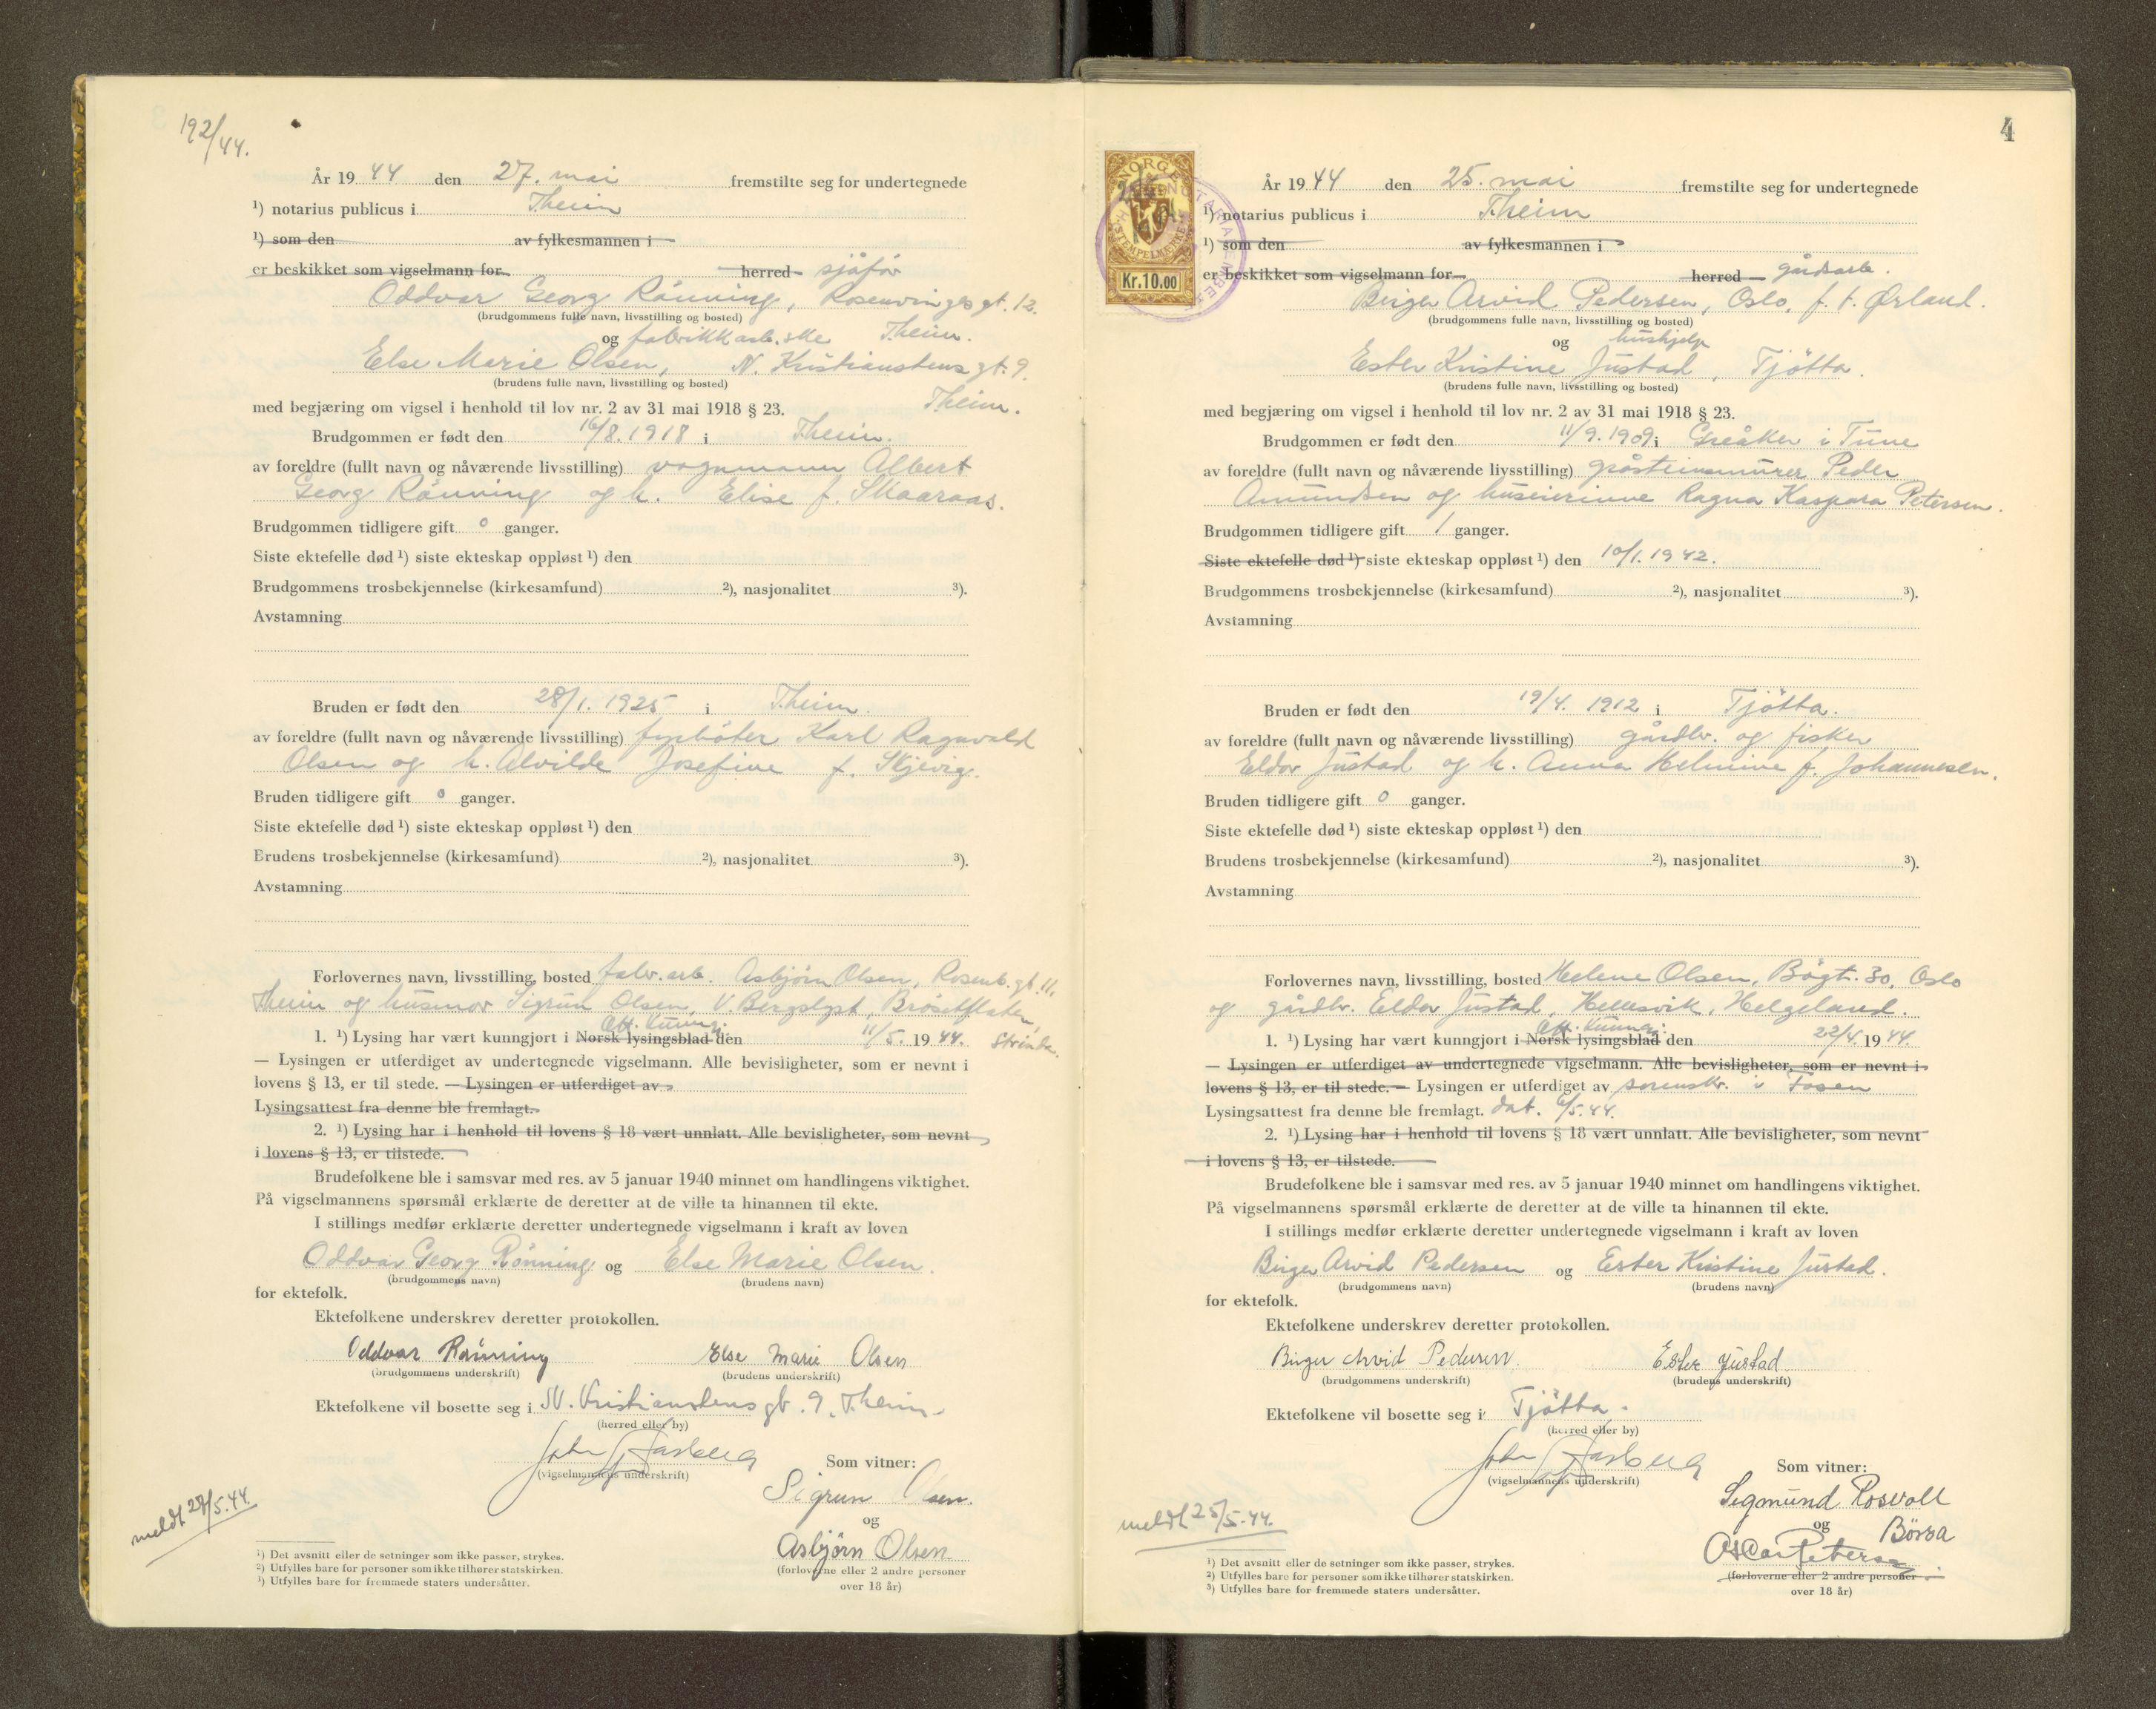 192/44.
År 1944 den 27. mai fremstilte seg for undertegnede
¹) notarius publicus i T.heim
¹) som den av fylkesmannen i
er beskikket som vigselmann for herred sjåfør
Oddvar Georg Rönning, Rosenvinges gt. 12.
(brudgommens fulle navn, livsstilling og bosted)
og fabrikkarb.ske T.heim.
Else Marie Olsen, N. Kristianstens gt. 9.
(brudens fulle navn, livsstilling og bosted)
T.heim.
med begjæring om vigsel i henhold til lov nr. 2 av 31 mai 1918 § 23.
Brudgommen er født den 16/8. 1918 i T.heim.
av foreldre (fullt navn og nåværende livsstilling) vognmann Albert
Georg Rönning og h. Elise f. Skaaraas.
Brudgommen tidligere gift 0 ganger.
Siste ektefelle død ¹) siste ekteskap oppløst ¹) den
Brudgommens trosbekjennelse (kirkesamfund) ²), nasjonalitet ³).
Avstamning
Bruden er født den 28/1. 1925 i T.heim.
av foreldre (fullt navn og nåværende livsstilling) fyrbøter Karl Ragnvald
Olsen og h. Alvilde Josefine f. Skjevig.
Bruden tidligere gift 0 ganger.
Siste ektefelle død ¹) siste ekteskap oppløst ¹) den
Brudens trosbekjennelse (kirkesamfund) ²), nasjonalitet ³).
Avstamning
Forlovernes navn, livsstilling, bosted fabr. arb. Asbjørn Olsen, Rosenb. gt. 11,
T.heim og husmor Sigrun Olsen, V. Bergslyst, Brøsetflaten,
Off. kunngj.
1. ¹) Lysing har vært kunngjort i Norsk lysingsblad den 11/5. 1944. Strinda.
— Lysingen er utferdiget av undertegnede vigselmann. Alle bevisligheter, som er nevnt i
lovens § 13, er til stede. — Lysingen er utferdiget av
Lysingsattest fra denne ble fremlagt.
2. ¹) Lysing har i henhold til lovens § 18 vært unnlatt. Alle bevisligheter, som nevnt
i lovens § 13, er tilstede.
Brudefolkene ble i samsvar med res. av 5 januar 1940 minnet om handlingens viktighet.
På vigselmannens spørsmål erklærte de deretter at de ville ta hinannen til ekte.
I stillings medfør erklærte deretter undertegnede vigselmann i kraft av loven
Oddvar Georg Rönning og Else Marie Olsen.
(brudgommens navn) (brudens navn)
for ektefolk.
Ektefolkene underskrev deretter protokollen.
Oddvar Rönning Else Marie Olsen
(brudgommens underskrift) (brudens underskrift)
Ektefolkene vil bosette seg i N. Kristianstens gt. 9, T.heim.
(herred eller by)
(vigselmannens underskrift)
Som vitner:
Sigrun Olsen.
og
Asbjörn Olsen
(forloverne eller 2 andre personer
over 18 år)
meldt 27/5.44.
¹) Det avsnitt eller de setninger som ikke passer, strykes.
²) Utfylles bare for personer som ikke tilhører statskirken.
³) Utfylles bare for fremmede staters undersåtter.
4
NORGE
STEMPELMERKE
Kr.10.00
År 1944 den 25. mai fremstilte seg for undertegnede
¹) notarius publicus i T.heim
¹) som den av fylkesmannen i
er beskikket som vigselmann for herred gårdsarb.
Birger Arvid Pedersen, Oslo, f. t. Ørland.
(brudgommens fulle navn, livsstilling og bosted)
og hushjelp
Ester Kristine Justad, Tjötta.
(brudens fulle navn, livsstilling og bosted)
med begjæring om vigsel i henhold til lov nr. 2 av 31 mai 1918 § 23.
Brudgommen er født den 11/9. 1909 i Greåker i Tune
av foreldre (fullt navn og nåværende livsstilling) gråsteinsmurer Peder
Amundsen og huseierinne Ragna Kaspara Petersen.
Brudgommen tidligere gift 1 ganger.
Siste ektefelle død ¹) siste ekteskap oppløst ¹) den 10/1. 1942.
Brudgommens trosbekjennelse (kirkesamfund) ²), nasjonalitet ³).
Avstamning
Bruden er født den 19/4. 1912 i Tjötta.
av foreldre (fullt navn og nåværende livsstilling) gårdbr. og fisker
Eldor Justad og h. Anna Helmine f. Johannesen.
Bruden tidligere gift 0 ganger.
Siste ektefelle død ¹) siste ekteskap oppløst ¹) den
Brudens trosbekjennelse (kirkesamfund) ²), nasjonalitet ³).
Avstamning
Forlovernes navn, livsstilling, bosted Helene Olsen, Bögt. 30, Oslo
og gårdbr. Eldor Justad, Helgeland.
Off. kunngj.
1. ¹) Lysing har vært kunngjort i Norsk lysingsblad den 22/4. 1944.
— Lysingen er utferdiget av undertegnede vigselmann. Alle bevisligheter, som er nevnt i
lovens § 13, er til stede. — Lysingen er utferdiget av sorenskr. i Fosen
Lysingsattest fra denne ble fremlagt. dat. 6/5.44.
2. ¹) Lysing har i henhold til lovens § 18 vært unnlatt. Alle bevisligheter, som nevnt
i lovens § 13, er tilstede.
Brudefolkene ble i samsvar med res. av 5 januar 1940 minnet om handlingens viktighet.
På vigselmannens spørsmål erklærte de deretter at de ville ta hinannen til ekte.
I stillings medfør erklærte deretter undertegnede vigselmann i kraft av loven
Birger Arvid Pedersen og Ester Kristine Justad.
(brudgommens navn) (brudens navn)
for ektefolk.
Ektefolkene underskrev deretter protokollen.
Birger Arvid Pedersen Ester Justad
(brudgommens underskrift) (brudens underskrift)
Ektefolkene vil bosette seg i Tjötta.
(herred eller by)
(vigselmannens underskrift)
Som vitner:
Segmund Rosvoll
og Börsa
(forloverne eller 2 andre personer
over 18 år)
meldt 25/5.44.
¹) Det avsnitt eller de setninger som ikke passer, strykes.
²) Utfylles bare for personer som ikke tilhører statskirken.
³) Utfylles bare for fremmede staters undersåtter.